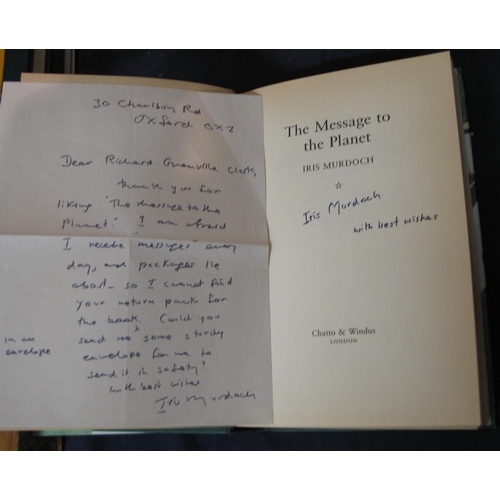 30 Charlbury Rd
Oxford OX2
Dear Richard Granville Clarke,
thank you for
liking "The Message to the
Planet". I am afraid
I receive "messages" every
day, and packages lie
about - so I cannot find
your return pack for
the book. Could you
send me some sturdy
in an
envelope
envelope for me to
send it in safety?
with best wishes
Iris Murdoch
The Message to
the Planet
IRIS MURDOCH
Iris Murdoch
with best wishes
Chatto & Windus
LONDON